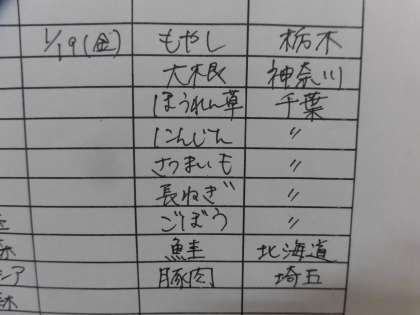 1/19(金) もやし 栃木
大根 神奈川
ほうれん草 千葉
にんじん 〃
さつまいも 〃
長ねぎ 〃
ごぼう 〃
鮭 北海道
豚肉 埼玉